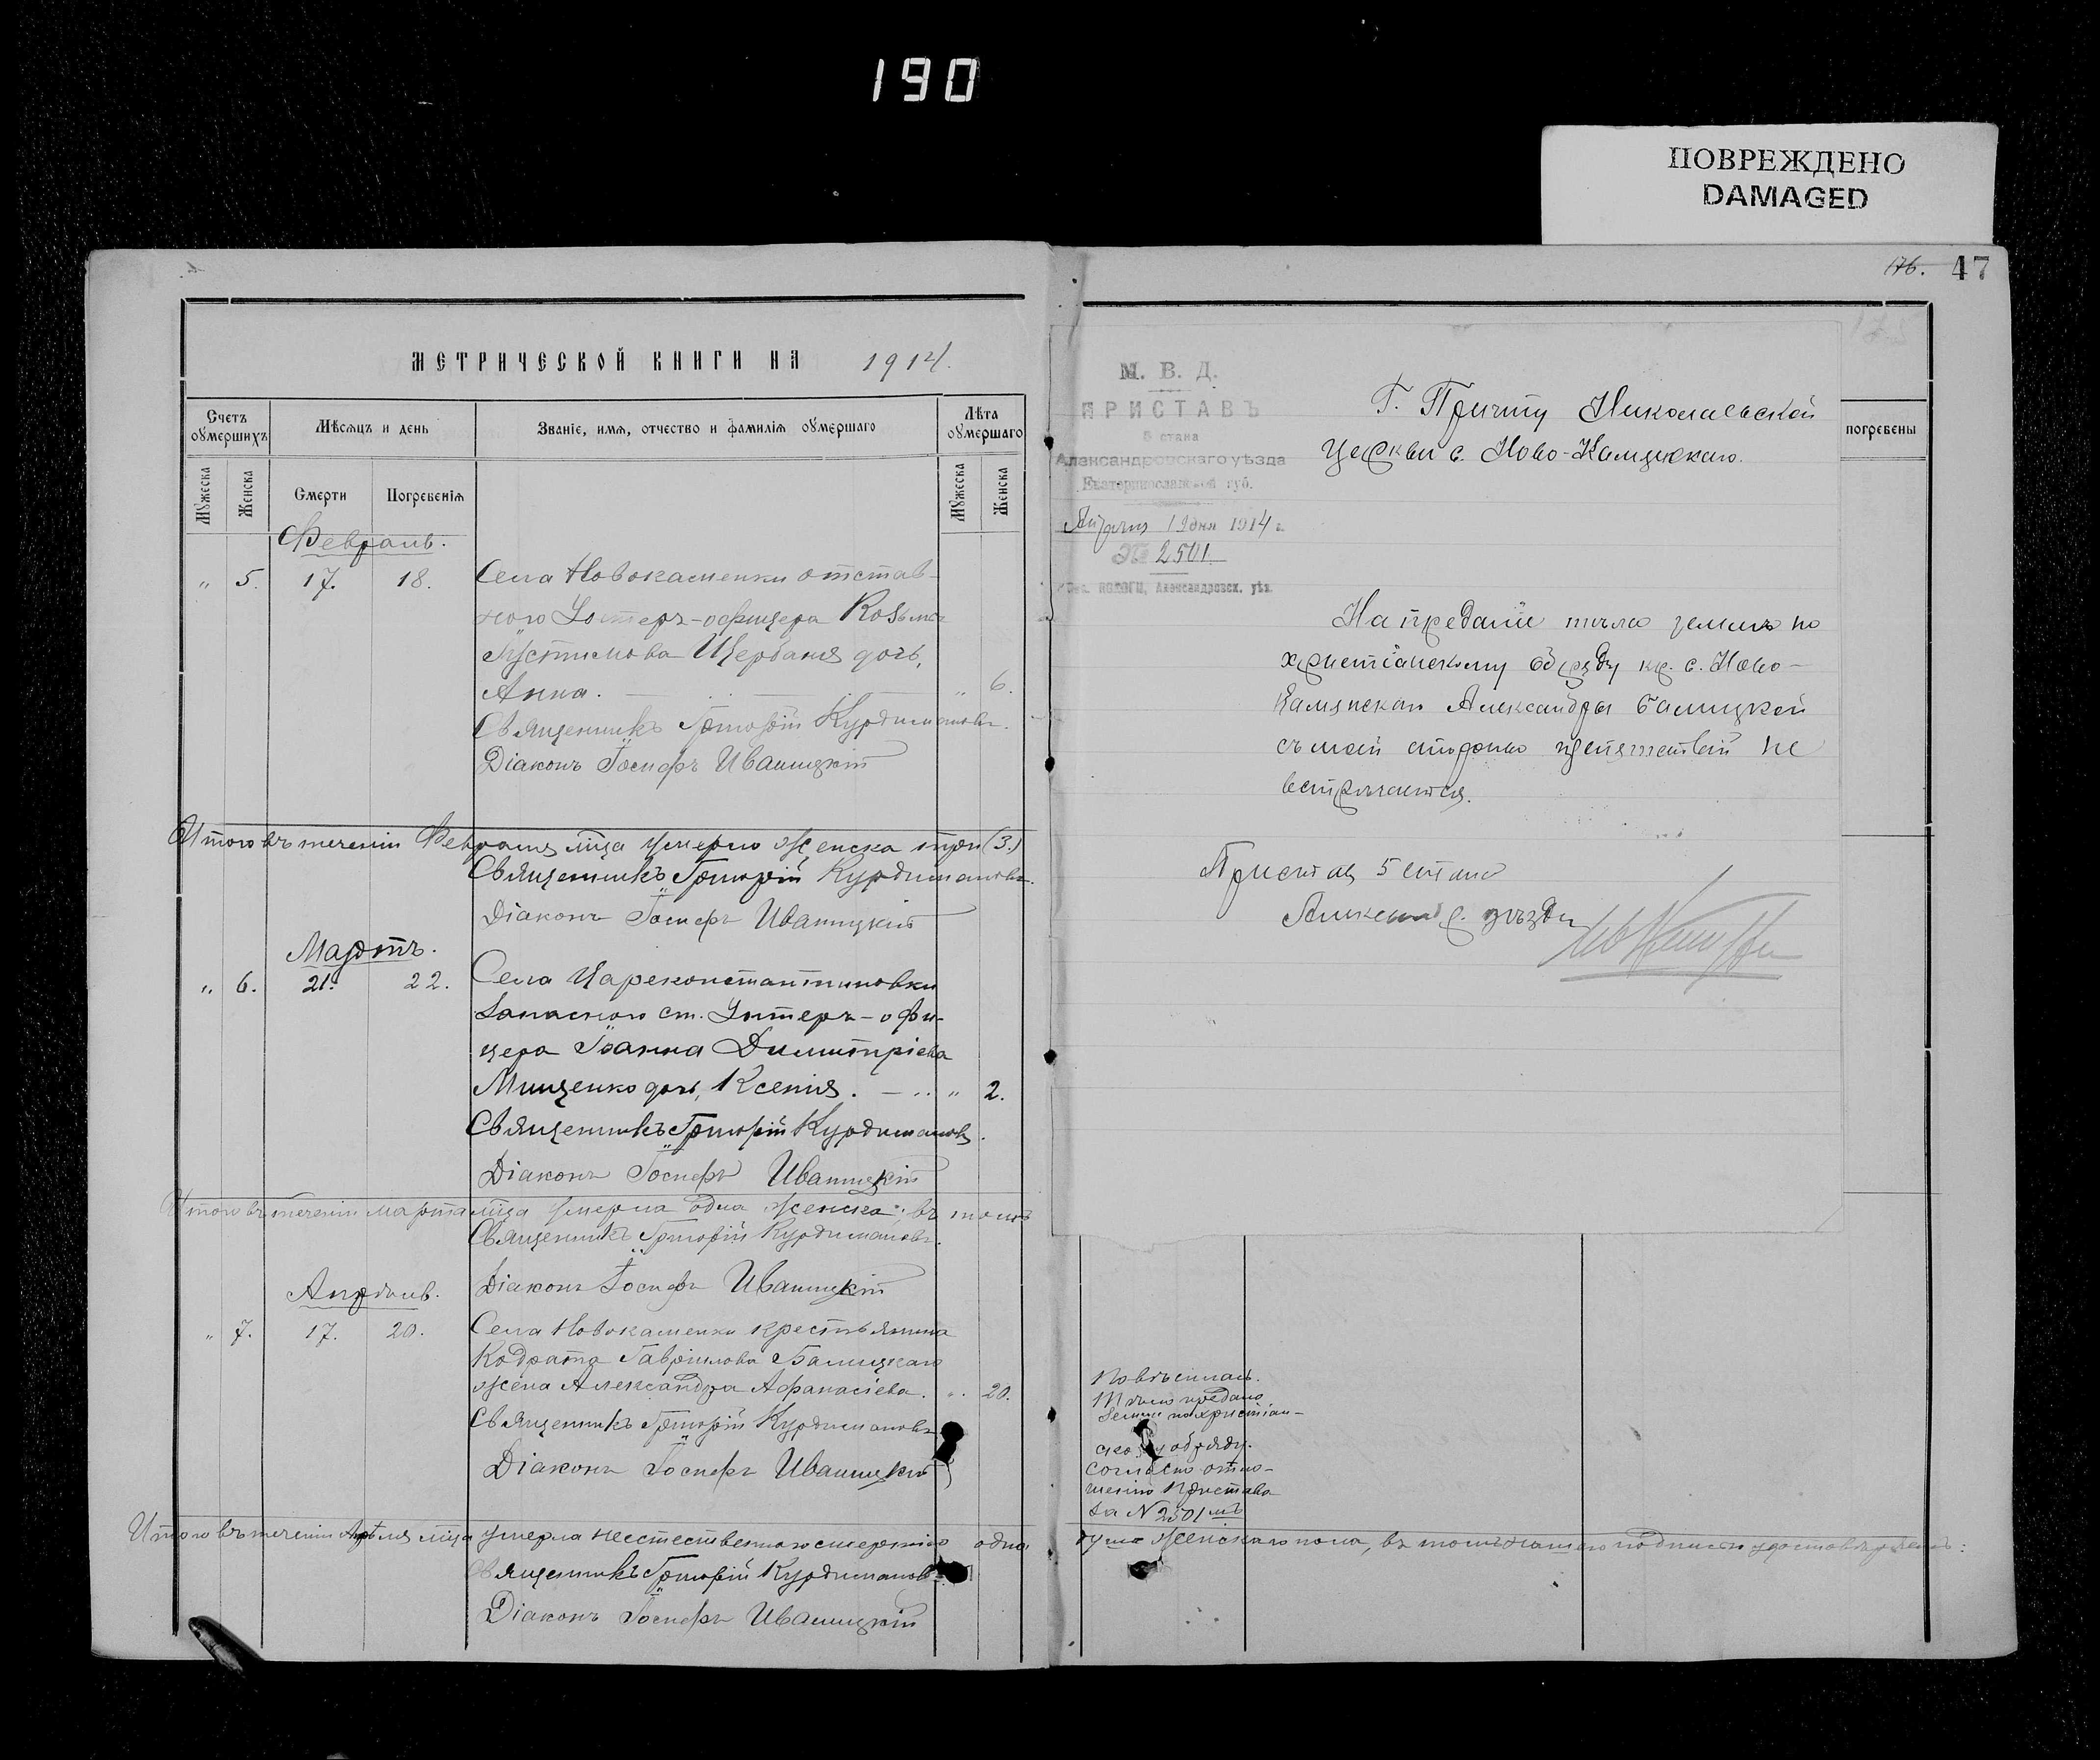 190
ПОВРЕЖДЕНО
DAMAGED
176. 47
МЕТРИЧЕСКОЙ КНИГИ НА 1914.
Счетъ умершихъ
Мѣсяцъ и день
Званіе, имя, отчество и фамилія умершаго
Лѣта умершаго
Мужеска
Женска
Смерти
Погребенія
Мужеска
Женска
Февраль.
" 5. 17. 18. Села Новокаменки отстав-
ного Унтеръ-офицера Козьмы
Устимова Щербаня дочь,
Анна. — " 6.
Священникъ Григорій Курдимановъ.
Діаконъ Іосифъ Иваницкій
Итого въ теченіи Февраля мца умерло Женска три (3.)
Священникъ Григорій Курдимановъ.
Діаконъ Іосифъ Иваницкій
Мартъ.
" 6. 21. 22. Села Цареконстантиновки
Запасного ст. Унтеръ-офи-
цера Іоанна Димитріева
Мищенко дочь, Ксенія. — " 2.
Священникъ Григорій Курдимановъ.
Діаконъ Іосифъ Иваницкій
Итого въ теченіи марта мца умерла одна Женска; въ томъ
Священникъ Григорій Курдимановъ.
Діаконъ Іосифъ Иваницкій
Апрѣль.
" 7. 17. 20. Села Новокаменки крестьянина
Кодрата Гавріилова Балицкаго
жена Александра Афанасіева. " 20.
Священникъ Григорій Курдимановъ
Діаконъ Іосифъ Иваницкій
Итого въ теченіи Апрѣля мца умерла неестественною смертію одна
Священникъ Григорій Курдимановъ
Діаконъ Іосифъ Иваницкій
М. В. Д.
ПРИСТАВЪ
5 стана
Александровскаго уѣзда
Екатеринославской губ.
Апрѣля 19 дня 1914 г.
№ 2501
ПОЛОГИ, Александровск. уѣз.
Г. Причту Николаевской
Церкви с. Ново-Каменскаго.
погребены
На преданіе тѣла землѣ по
христіанскому обряду кр. с. Ново-
Каменскаго Александры Балицкой
съ моей стороны препятствій не
встрѣчается.
Приставъ 5 стана
Александр. уѣзда
Повѣсилась.
Тѣло предано
Земли по христіан-
скому обряду.
согласно отно-
шенію Пристава
за № 2501мъ
душа Женскаго пола, въ томъ нашею подписью удостовѣряемъ: